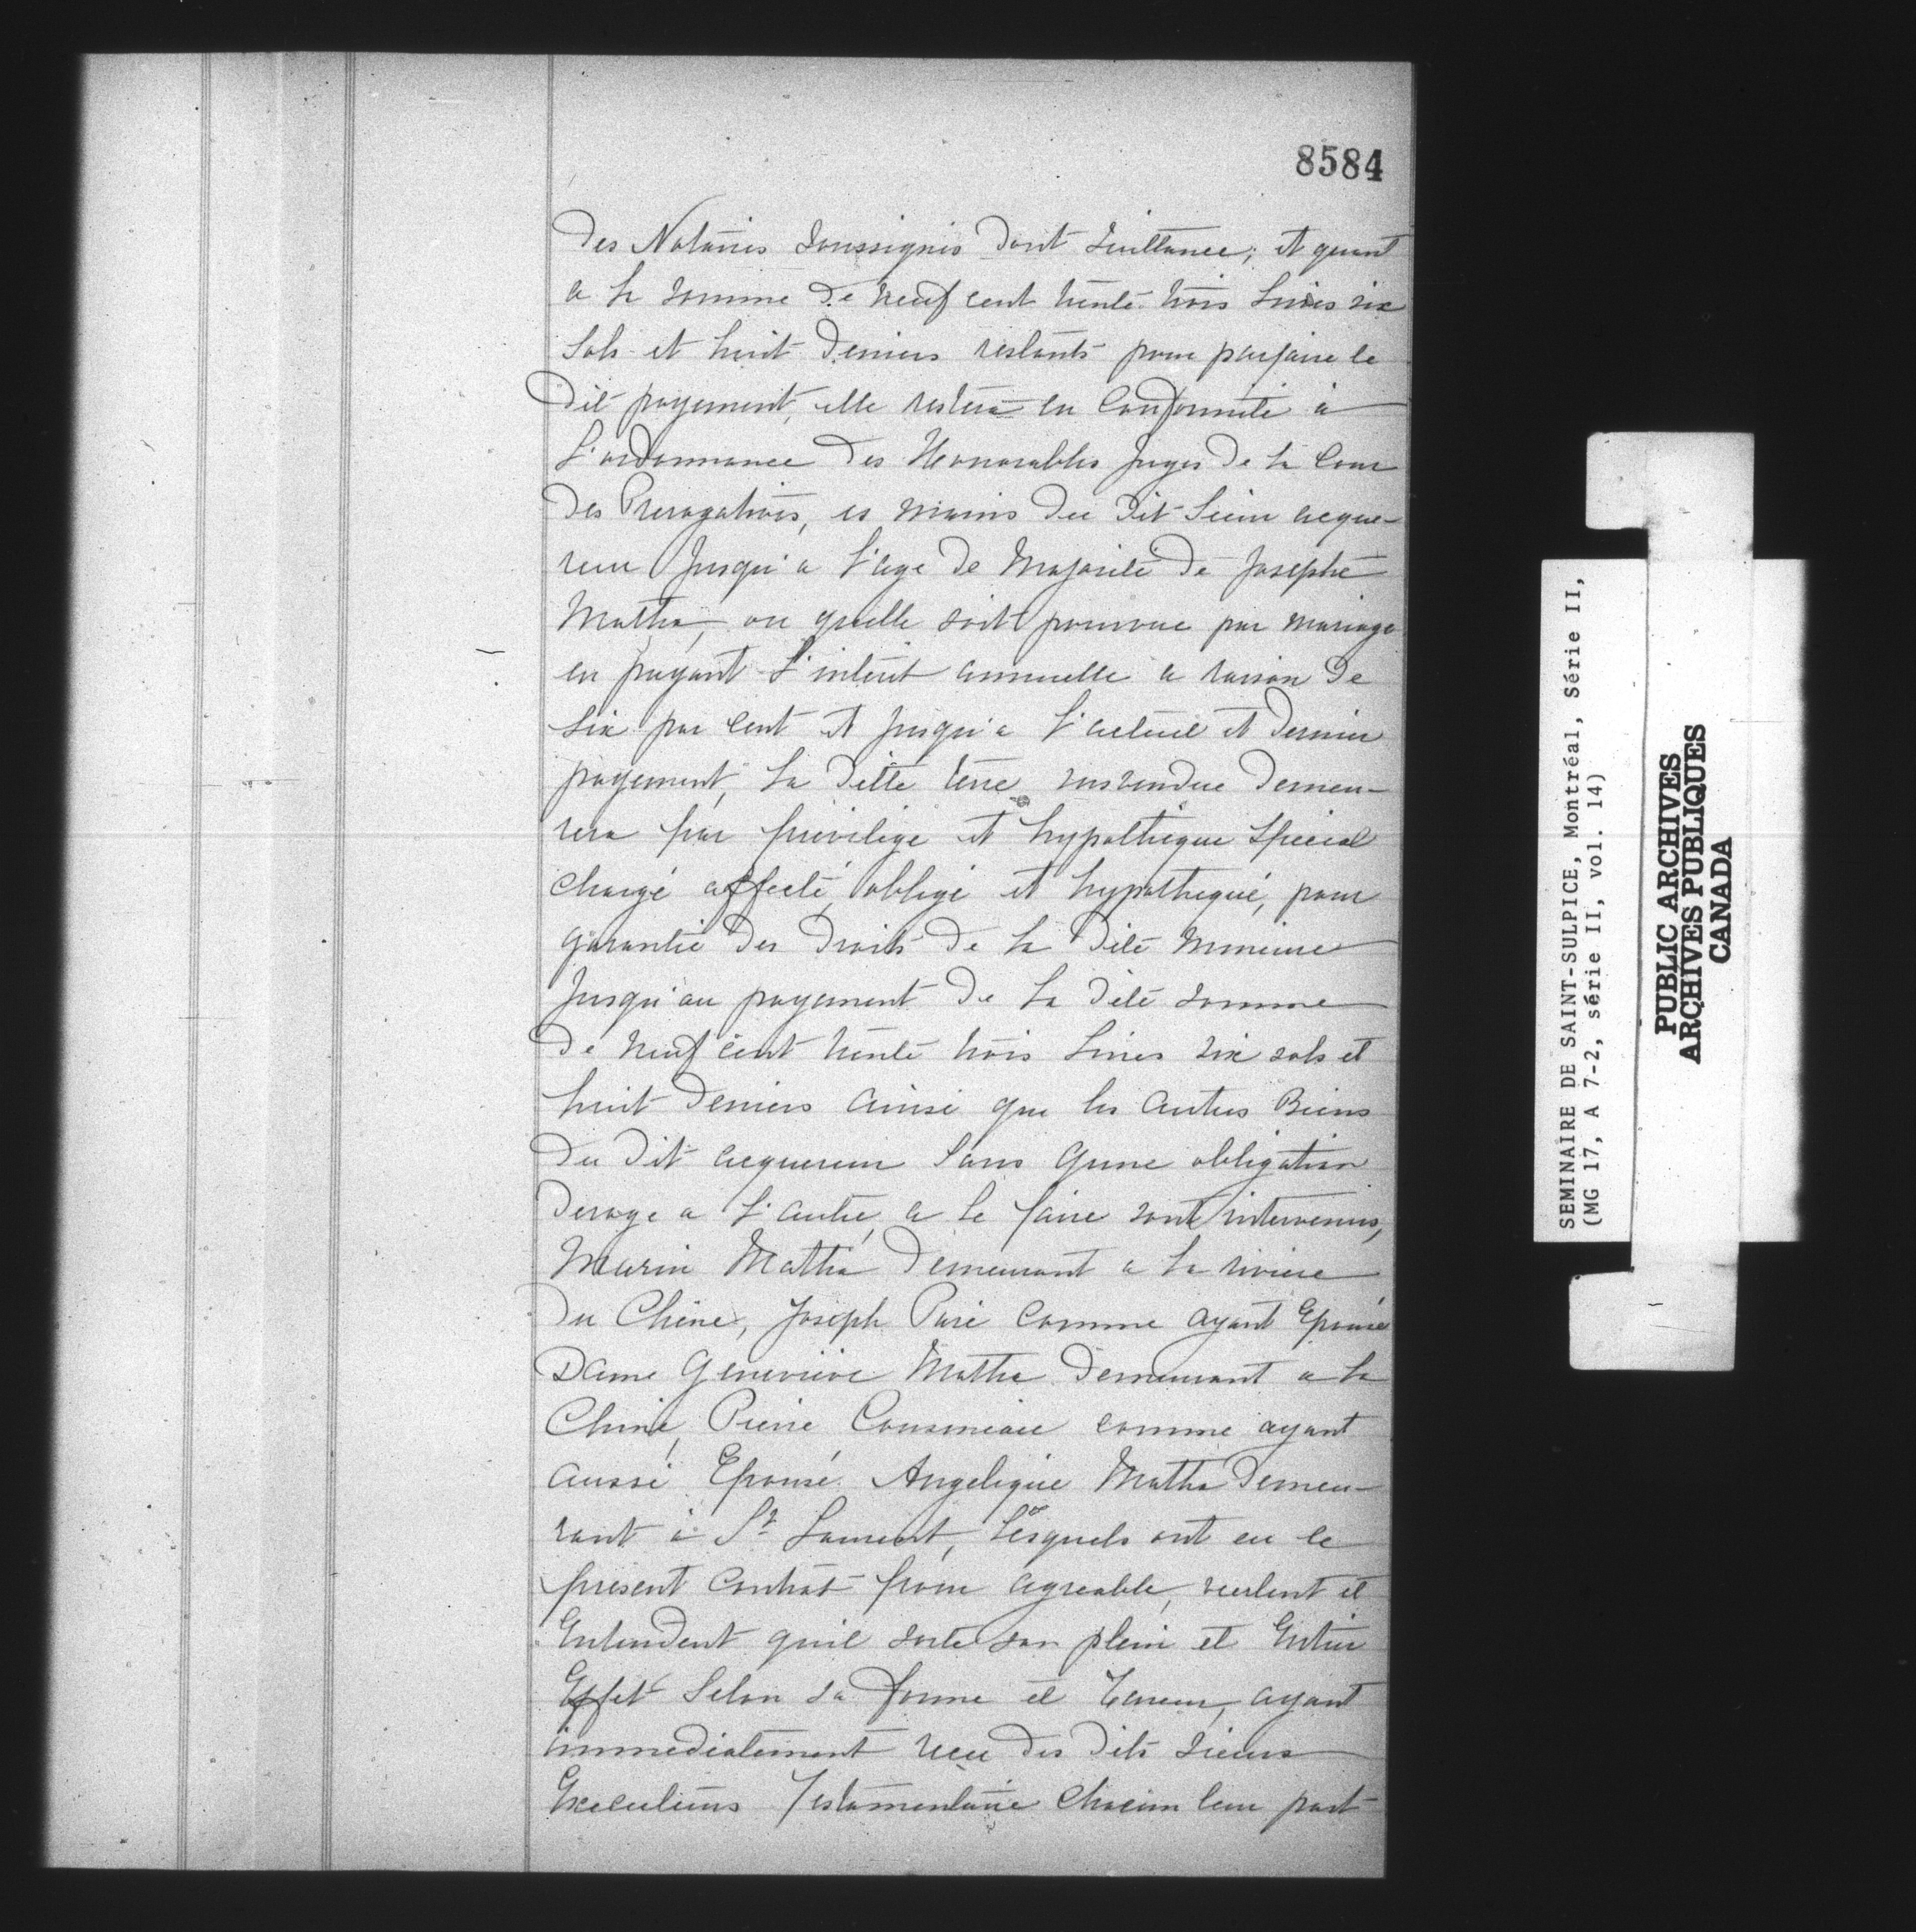 8584
des Notaires soussignés dont quittance; et quant
a la somme de neuf cent trente trois livres six
sols et huit deniers restants pour parfaire le
dit payement, elle restera en conformité à
l'ordonnance des Honorables Juges de la Cour
des Prerogatives, es mains du dit Sieur acque-
reur Jusqu'a l'age de Majorité de Josephe
Matha, ou quelle soit pourvue par mariage
en payant l'intérêt annuelle a raison de
six par cent et jusqu'a l'actuel et dernier
payement, la ditte terre susvendue demeu-
rera par privilège et hypothèque spécial
chargé affecté, obligé et hypothequé, pour
garantie des droits de la dite mineure
Jusqu'au payement de la dite somme
de neuf cent trente trois livres six sols et
huit deniers ainsi que les autres Biens
du dit acquereur sans qune obligation
deroge a l'autre, a ce faire sont intervenus,
Marin Matha, demeurant a la rivière
du Chêne, Joseph Paré comme ayant Epousé
Dame Geneviève Matha demeurant a la
Chine, Pierre comme ayant
aussi Epousé Angelique Matha demeu-
rant à St Laurent, lesquels ont eu le
présent contrat pour agreable, veulent et
Entendent quil sorte son plein et Entier
Effet selon sa forme et teneur, ayant
immediatement recu des dits sieurs
Executeurs Testamentaire chacun leur part
SEMINAIRE DE SAINT-SULPICE, Montréal, Série II,
(MG 17, A 7-2, série II, vol. 14)
PUBLIC ARCHIVES
ARCHIVES PUBLIQUES
CANADA